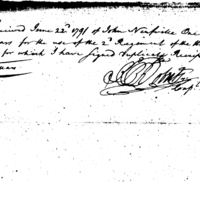 eceived June 22d 1791 of John Neufville One
ars for the use of the 2d Regiment of the
for which I have Signed duplicate Receip
Capt